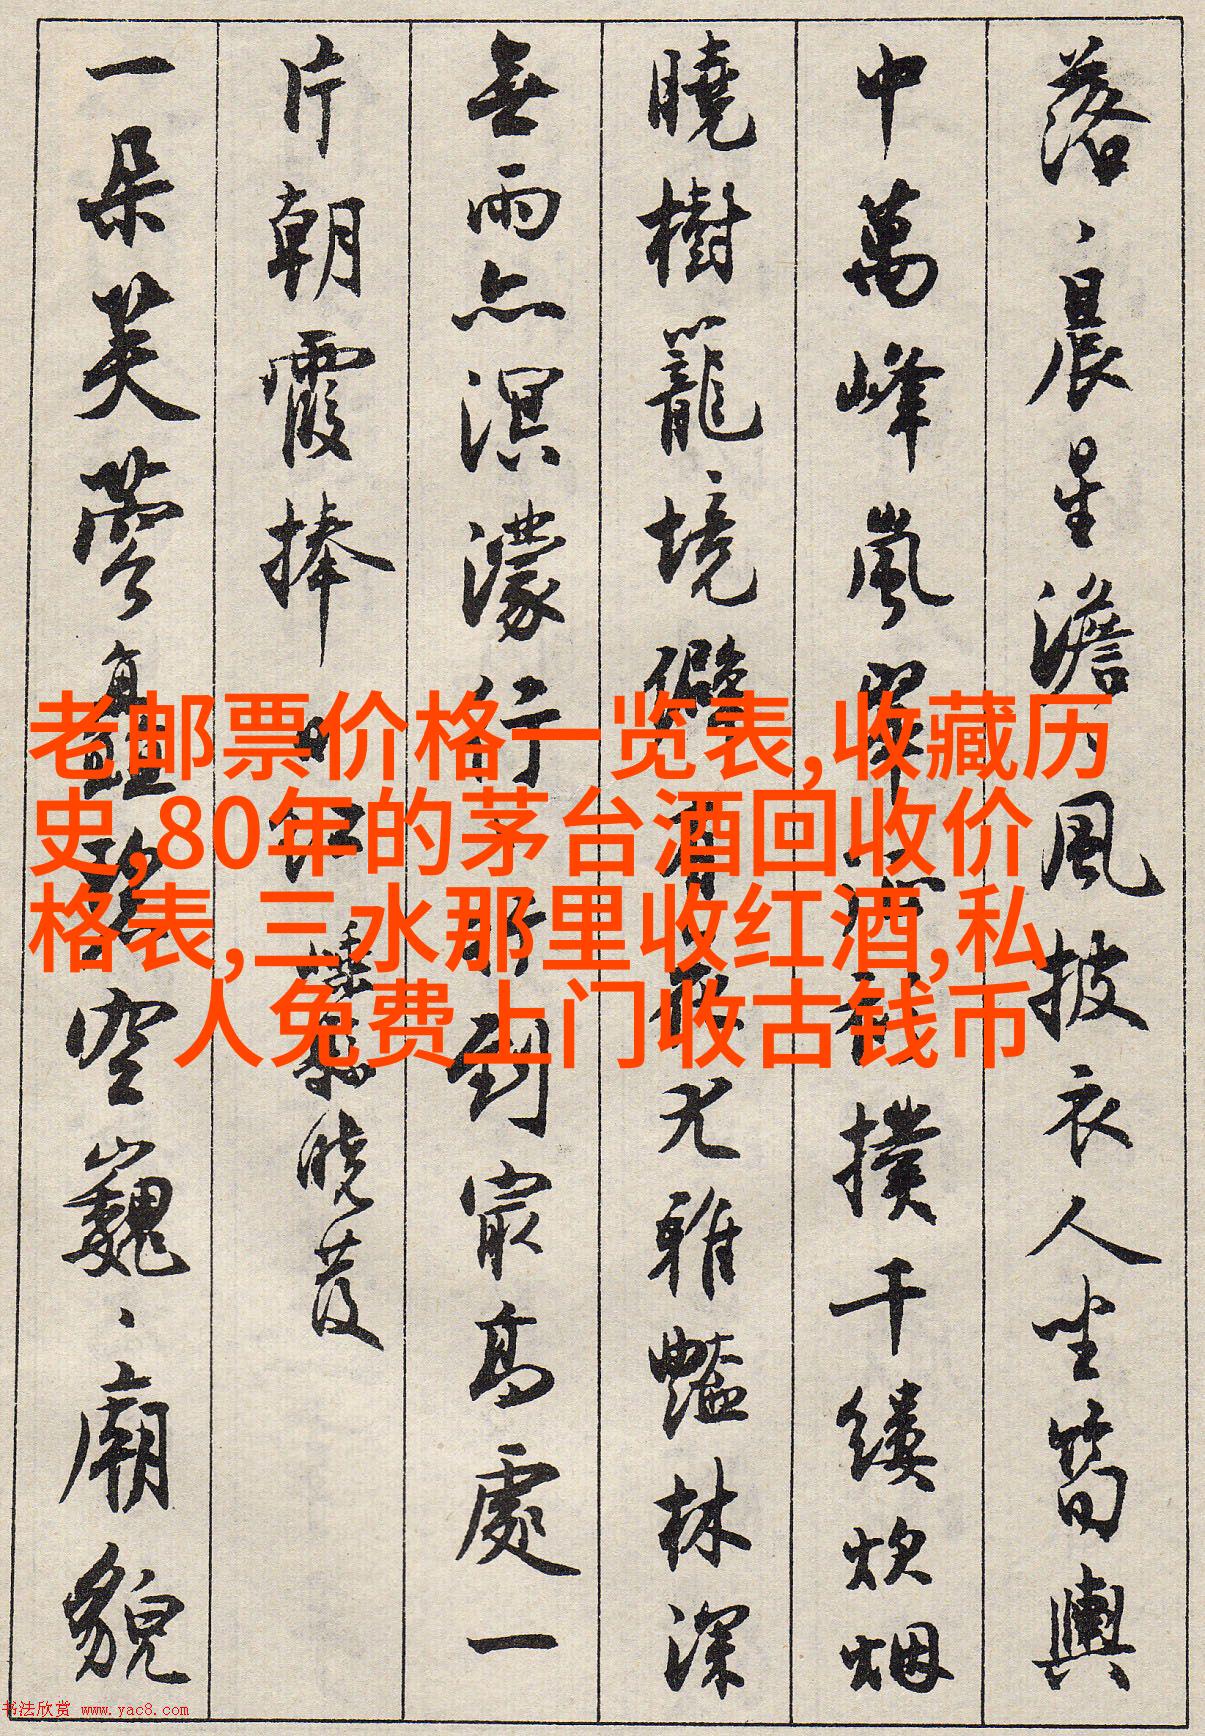 落、晨星澹、風披衣人坐筍輿
中萬峰嵐翠撲千縷炊烟
曉樹籠、境僻尤雅豔林深
無雨亦溟濛行、行到最高處一
片朝霞捧日紅 曉發
一朵芙蓉矗碧空巍、廟貌
老邮票价格一览表,收藏历
史,80年的茅台酒回收价
格表,三水那里收红酒,私
人免费上门收古钱币
书法欣赏 www.yac8.com